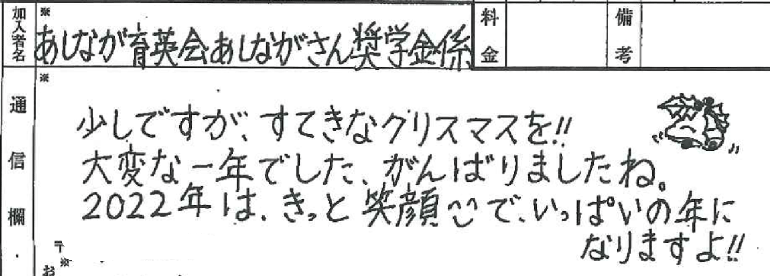 加入者名
※
あしなが育英会あしながさん奨学金係
料金
備考
通信欄・
※
少しですが、すてきなクリスマスを!!
大変な一年でした、がんばりましたね。
2022年は、きっと笑顔^^で、いっぱいの年に
なりますよ!!
〒
※
お